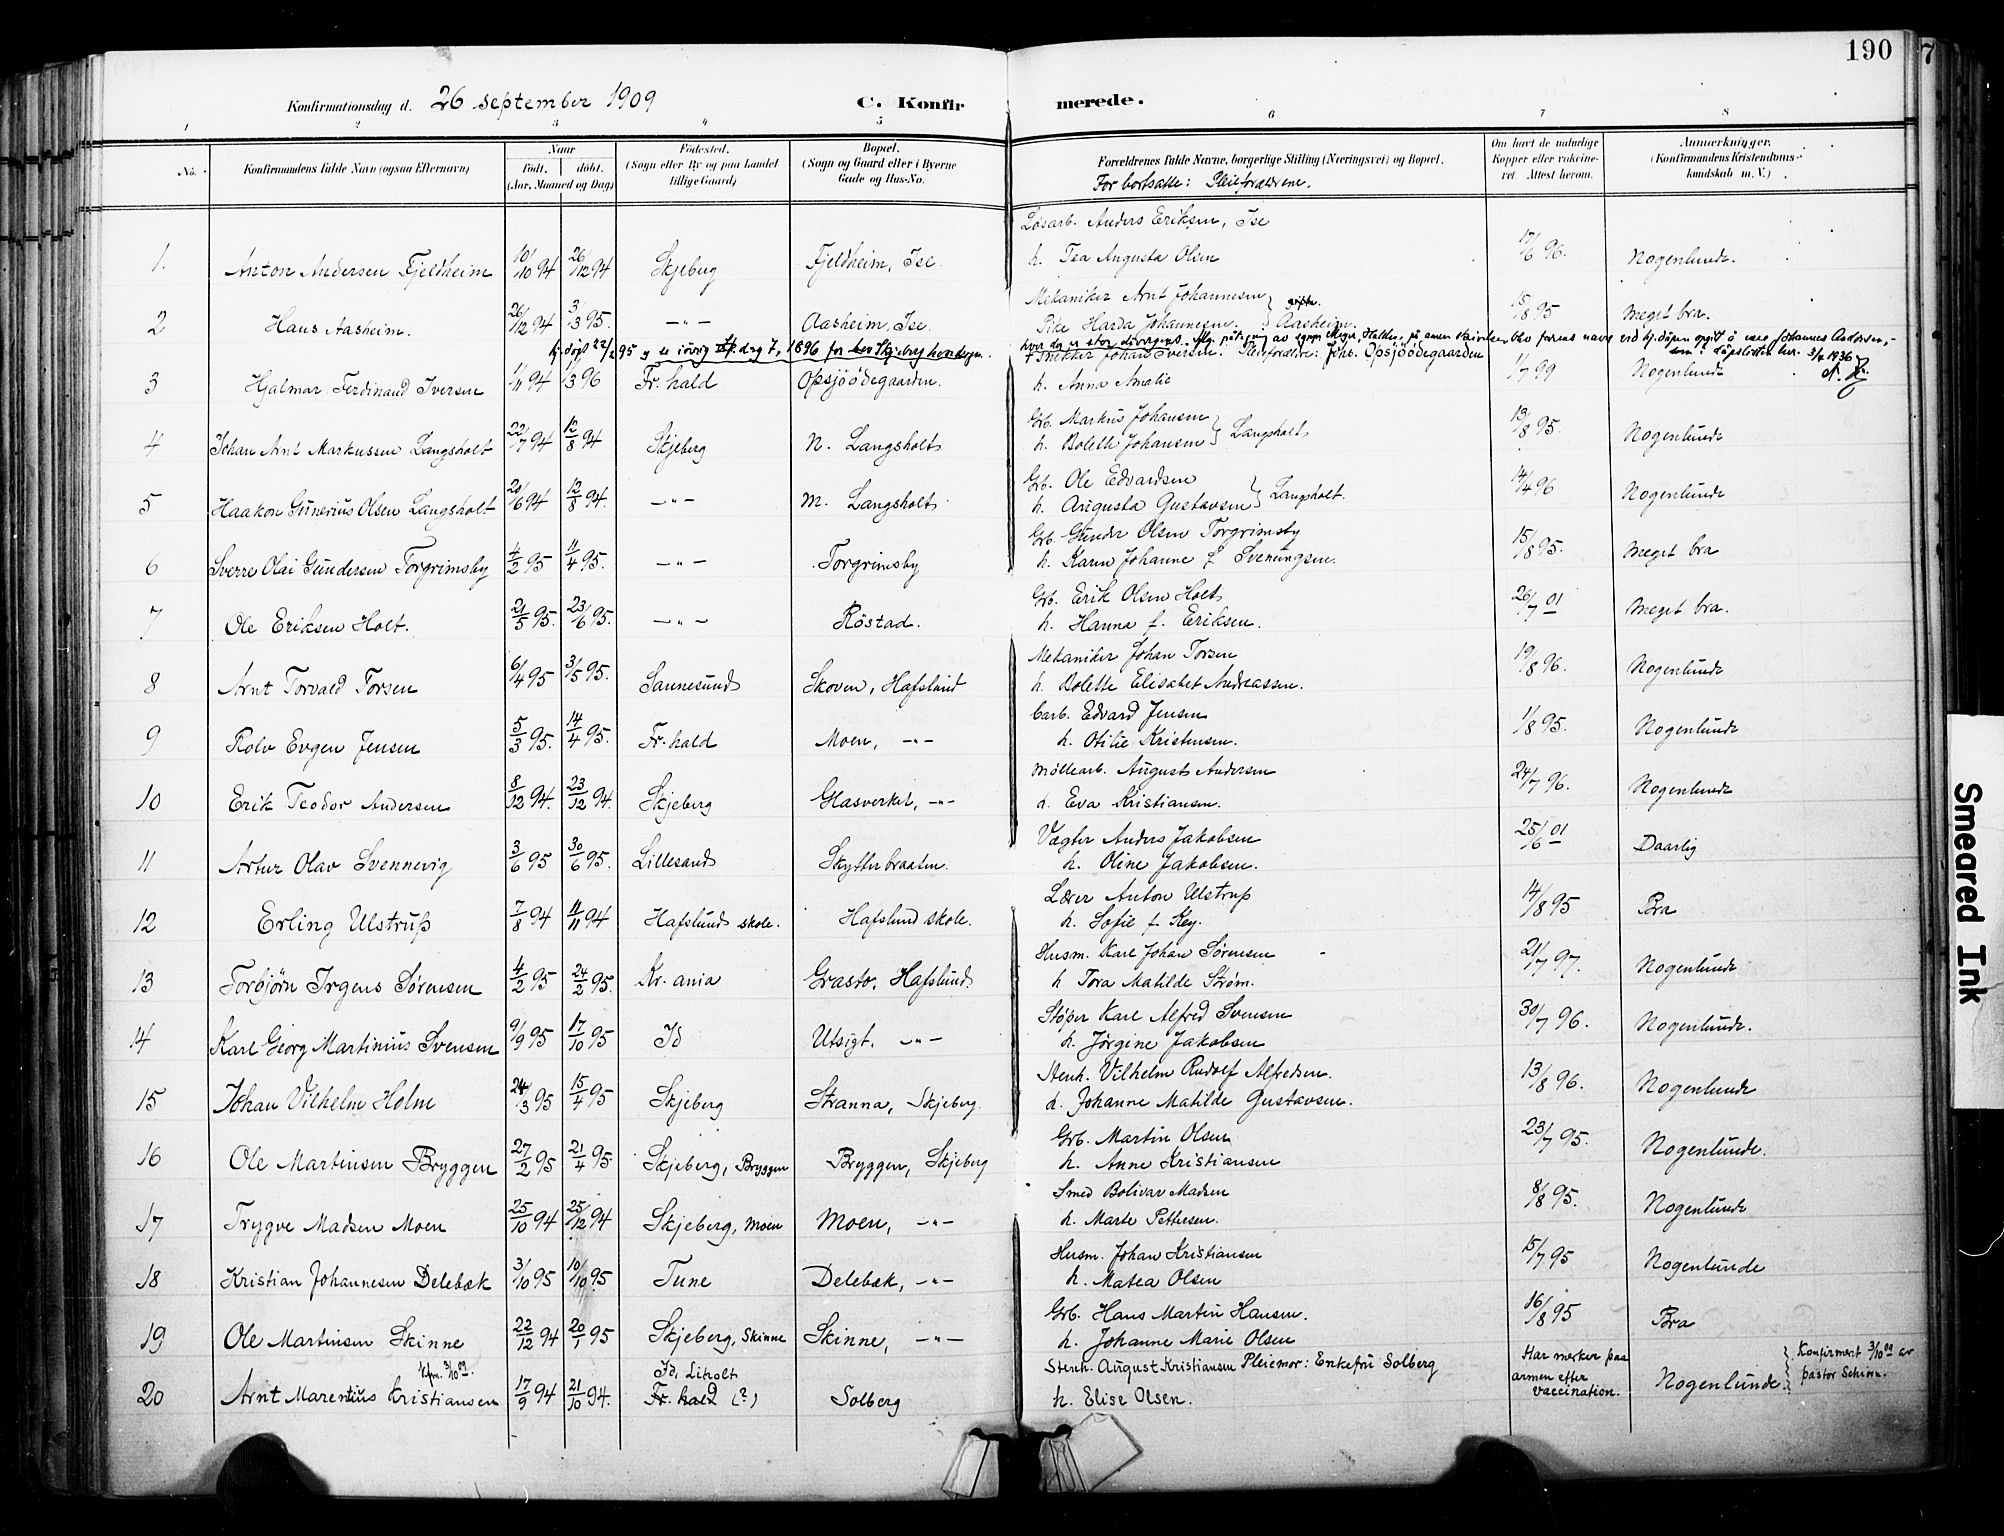 190
Konfirmationsdag d. 26 september 1909 C. Konfirmerede.
1 2 3 4 5 6 7 8
No. Konfirmandens fulde Navn (ogsaa Efternavn) Naar Født. døbt. (Aar, Maaned og Dag) Fødested. (Sogn eller By og paa Landet tillige Gaard) Bopæl. (Sogn og Gaard eller i Byerne Gade og Hus-No. Forældrenes fulde Navne, borgerlige Stilling (Næringsvei) og Bopæl. For bortsatte: Pleieforældrene. Om havt de naturlige Kopper eller vakcineret. Attest herom. Anmærkninger. (Konfirmandens Kristendomskundskab m. V.)
Løsarb. Anders Eriksen, Ise
1. Anton Andersen Fjeldheim 10/10 94 26/12 94 Skjeberg Fjeldheim, Ise. h. Tea Augusta Olsen 17/6 96. Nogenlunde.
Mekaniker Arnt Johannesen
2 Hans Aasheim. 26/12 94 3/3 95. -"- Aasheim, Ise. Pike Harda Johannesen. Aasheim. 15/8 95 Meget bra.
Snekker Johan Iversen. Pleieforældre: Johs. Opsjöödegaarden
3 Hjalmar Ferdinand Iversen 1/11 94 1/3 96 Fr. hald Opsjöödegaarden. h. Anna Amalie 1/7 99 Nogenlunde
Grb. Markus Johansen
4 Johan Arnt Markussen Langsholt 22/7 94 12/8 94 Skjeberg N. Langsholt h. Bolette Johansen } Langsholt 13/8 95. Nogenlunde
Grb. Ole Edvardsen
5 Haakon Gunerius Olsen Langsholt 20/6 94 12/8 94. -"- M. Langsholt h. Augusta Gustavsen } Langsholt. 14/4 96 Nogenlunde
Grb. Gunder Olsen Torgrimsby
6 Sverre Olai Gundersen Torgrimsby 4/2 95 11/4 95. -"- Torgrimsby h. Karen Johanne f. Svenungsen. 15/8 95. Meget bra
Grb. Erik Olsen Holt
7 Ole Eriksen Holt. 21/5 95. 23/6 95. -"- Röstad. h. Hanna f. Eriksen. 26/7 01 Meget bra.
Mekaniker Johan Torsen
8 Arnt Torvald Torsen 6/4 95 3/5 95. Sannesund Skoven, Hafslund h. Bolette Elisabet Andreassen. 19/8 96. Nogenlunde
Carb. Edvard Jensen
9 Rolv Evgen Jensen 5/3 95. 14/4 95. Fr. hald Moen, -"- h. Otilie Kristensen. 1/8 95. Nogenlunde
Møllearb. August Andersen
10 Erik Teodor Andersen 8/12 94. 23/12 94. Skjeberg Glasverket, -"- h. Eva Kristiansen. 24/7 96. Nogenlunde
Vægter Anders Jakobsen
11 Artur Olav Svennevig 3/6 95 30/6 95. Lillesand Skytterbraaten. h. Oline Jakobsen. 25/6 01 Daarlig
Lærer Anton Ulstrup
12 Erling Ulstrup 7/8 94 11/11 94 Hafslund skole. Hafslund skole. h. Sofie f. Key. 14/8 95 Bra
Husm. Karl Johan Sørensen
13 Torbjörn Irgens Sørensen 4/2 95 24/2 95. Kr.ania Grastv. Hafslund h. Tora Matilde Strøm. 21/7 97. Nogenlunde
Støper Karl Alfred Svensen
14 Karl Georg Martinius Svensen 9/9 95 17/10 95 Id Utsigt. -"- h. Jørgine Jakobsen 30/7 96. Nogenlunde.
Stenh. Vilhelm Rudolf Alfredsen.
15 Johan Vilhelm Holm 24/3 95 15/4 95 Skjeberg Stranna, Skjeberg. h. Johanne Matilde Gustavsen. 13/8 96. Nogenlunde
Grb. Martin Olsen
16 Ole Martinsen Bryggen 27/2 95 21/4 95. Skjeberg, Bryggen Bryggen, Skjeberg h. Anne Kristiansen 23/7 95. Nogenlunde.
Smed Bolivar Madsen
17 Trygve Madsen Moen 25/10 94 25/12 94 Skjeberg, Moen Moen, -"- h. Marte Pettersen. 8/8 95. Nogenlunde
Husm. Johan Kristiansen
18 Kristian Johannesen Delebæk 3/10 95 10/10 95 Tune Delebæk, -"- h. Matea Olsen 15/7 95 Nogenlunde
Grb. Hans Martin Hansen.
19 Ole Martinsen Skinne 22/12 94 20/1 95 Skjeberg, Skinne Skinne, -"- h. Johanne Marie Olsen 16/8 95 Bra
Kfm. 3/10 09. Id, Liholt Stenh. August Kristiansen Pleiemor: Enkefru Solberg Har merker paa armen efter vaccination.
20 Arnt Marentius Kristiansen 17/9 94 21/10 94. Fr. hald (?) Solberg h. Elise Olsen. Nogenlunde. Konfirmert 3/10 09 av pastor Schiørn.
Smeared Ink